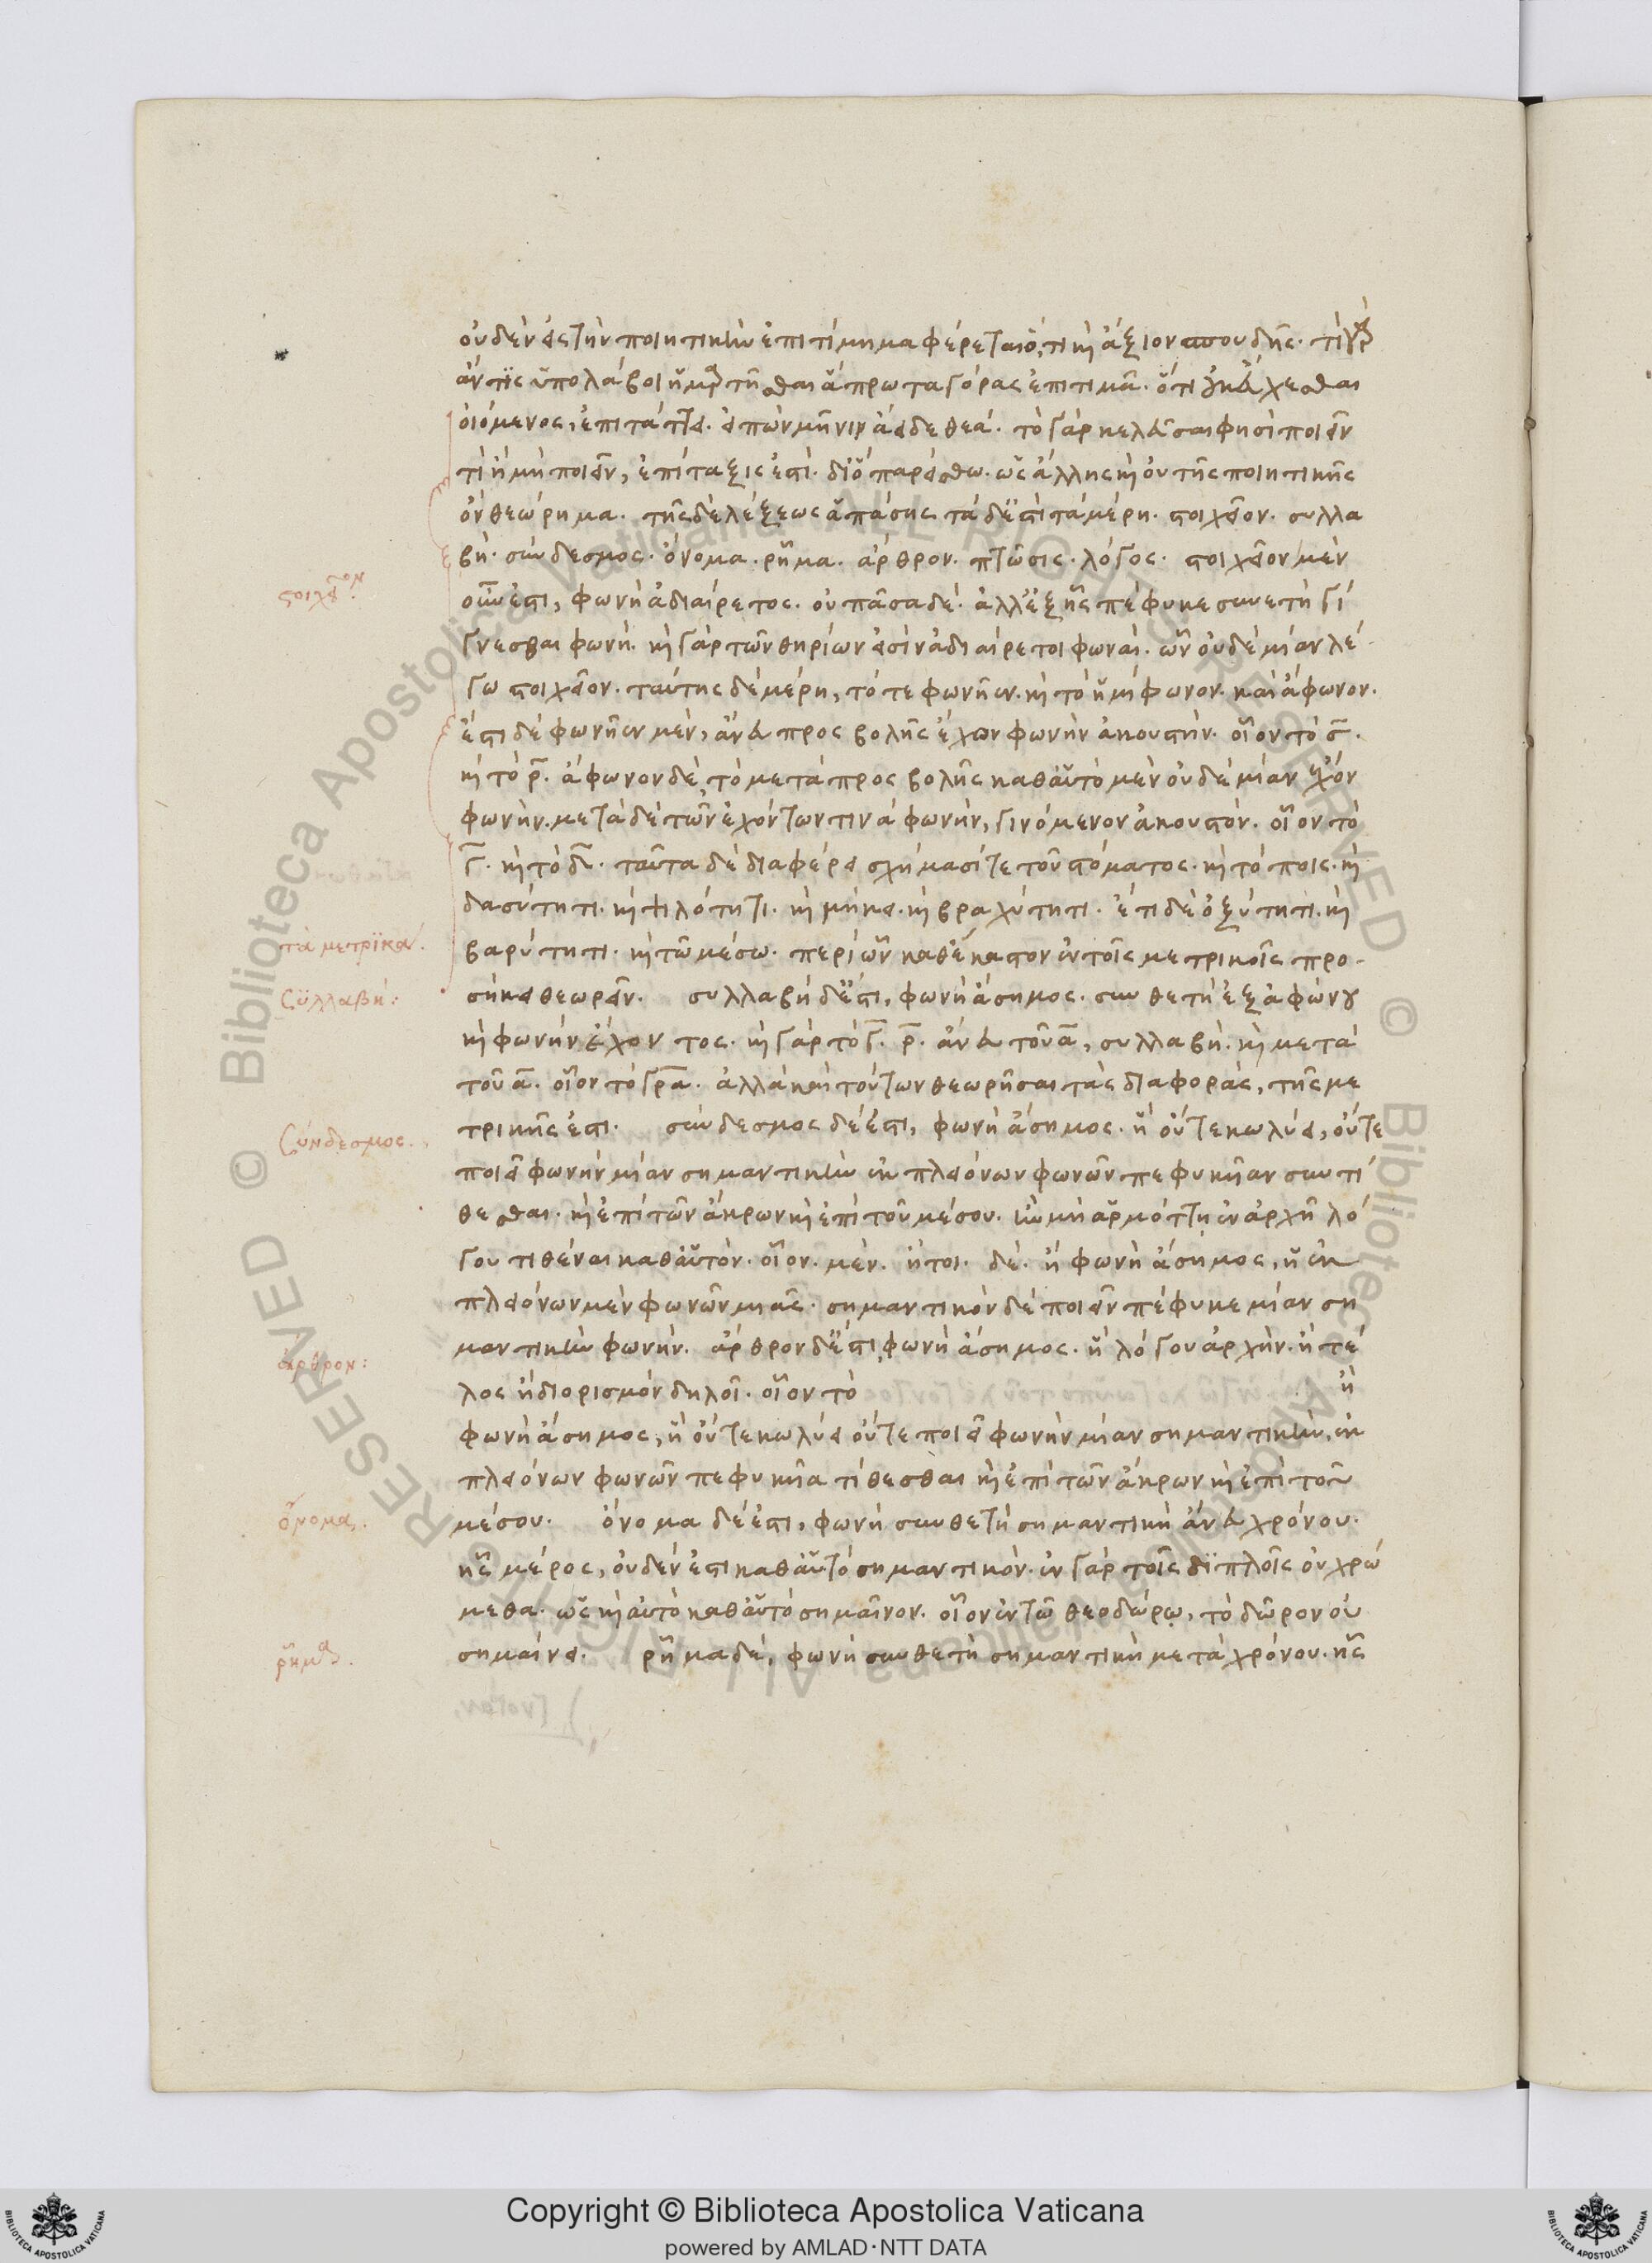 οὐδὲν εἰς τὴν ποιητικὴν ἐπιτίμημα φέρεται ὅ, τι κ̀ ἄξιον σπουδῆς. τί γὰρ
ἄν τις ὑπολάβοι ἡμαρτῆσθαι ἃ πρωταγόρας ἐπιτιμᾶ. ὅτι εὔχεσθαι
οἰόμενος, ἐπιτάττει. εἰπὼν μῆνιν ἄειδε θεά. τὸ γὰρ κελεῦσαι φησὶ ποιεῖν
τὶ ἢ μὴ ποιεῖν, ἐπίταξις ἐστί. διὸ παρείσθω. ὡς ἄλλης κ̀ οὐ τῆς ποιητικῆς
ὂν θεώρημα. τῆς δὲ λέξεως ἁπάσης τὰ δ' ἐστὶ τὰ μέρη. στοιχεῖον. συλλα
βή. σύνδεσμος. ὄνομα. ρῆμα. ἄρθρον. πτῶσις. λόγος. στοιχεῖον μὲν
οὖν ἐστι, φωνὴ ἀδιαίρετος. οὐ πᾶσα δὲ. ἀλλ' ἐξ ἧς πέφυκε συνετὴ γί
γνεσθαι φωνή. κ̀ γὰρ τῶν θηρίων εἰσὶν ἀδιαίρετοι φωναί. ὧν οὐδὲ μίαν λέ
γω στοιχεῖον. ταύτης δὲ μέρη, τό τε φωνῆεν. κ̀ τὸ ἡμίφωνον. καὶ ἄφωνον.
ἔστι δὲ φωνῆεν μὲν, ἄνευ προσβολῆς ἔχων φωνὴν ἀκουστήν. οἷον τὸ σ̅.
κ̀ τὸ ρ̅. ἄφωνον δὲ, τὸ μετὰ προσβολῆς καθ' αὑτὸ μὲν οὐδὲ μίαν ἔχον
φωνήν. μετὰ δὲ τῶν ἐχόντων τινὰ φωνήν, γινόμενον ἀκουστόν. οἷον τὸ
γ̅. κ̀ τὸ δ̅. ταῦτα δὲ διαφέρει σχήμασί τε τοῦ στόματος. κ̀ τόποις. κ̀
δασύτητι. κ̀ ψιλότητι. κ̀ μήκει. κ̀ βραχύτητι. ἔτι δὲ ὀξύτητι. κ̀
βαρύτητι. κ̀ τῶ μέσω. περὶ ὧν καθ' ἕκαστον ἐν τοῖς μετρικοῖς προ
σήκει θεωρεῖν. συλλαβὴ δ' ἐστι, φωνὴ ἄσημος. συνθετὴ ἐξ ἀφώνου
κ̀ φωνὴν ἔχοντος. κ̀ γὰρ τὸ γ̅. ρ̅. ἄνευ τοῦ α̅, συλλαβή. κ̀ μετὰ
τοῦ α̅. οἷον τὸ γρα̅. ἀλλὰ καὶ τούτων θεωρῆσαι τὰς διαφοράς, τῆς με
τρικῆς ἐστι. σύνδεσμος δέ ἐστι, φωνὴ ἄσημος. ἣ οὔτε κωλύει, οὔτε
ποιεῖ φωνὴν μίαν σημαντικὴν ἐκ πλειόνων φωνῶν πεφυκῆαν συντί
θεσθαι. κ̀ ἐπὶ τῶν ἄκρων κ̀ ἐπὶ τοῦ μέσου. ἢν μὴ ἁρμόττη ἐν ἀρχῆ λό
γου τιθέναι καθ' αὑτόν. οἷον. μὲν. ἤτοι. δὲ. ἢ φωνὴ ἄσημος, ἢ ἐκ
πλειόνων μὲν φωνῶν μιᾶς. σημαντικὸν δὲ ποιεῖν πέφυκε μίαν ση
μαντικὴν φωνήν. ἄρθρον δ' ἐστι, φωνὴ ἄσημος. ἢ λόγου ἀρχὴν. ἢ τέ
λος ἢ διορισμὸν δηλοῖ. οἷον τὸ ἢ
φωνὴ ἄσημος, ἣ οὔτε κωλύει οὔτε ποιεῖ φωνὴν μίαν σημαντικὴν, ἐκ
πλειόνων φωνῶν πεφυκῆα τίθεσθαι κ̀ ἐπὶ τῶν ἄκρων κ̀ ἐπὶ τοῦ
μέσου. ὄνομα δέ ἐστι, φωνὴ συνθετὴ σημαντικὴ ἄνευ χρόνου.
ἧς μέρος, οὐδέν ἐστι καθ' αὑτὸ σημαντικόν. ἐν γὰρ τοῖς διπλοῖς οὐ χρώ
μεθα. ὡς κ̀ αὐτὸ καθ' αὑτὸ σημαῖνον. οἷον ἐν τῶ θεοδώρω, τὸ δῶρον οὐ
σημαίνει. ρῆμα δὲ, φωνὴ συνθετὴ σημαντικὴ μετὰ χρόνου. ἧς
στοιχεῖον
τὰ μετρϊκά.
Σϋλλαβή:
Σύνδεσμος.
ἄρθρον:
ὄνομα.
ρῆμα.
RESERVED © Biblioteca Apostolica Vaticana ALL RIGHTS RESERVED © Biblioteca Apostolica Vaticana ALL RIGHTS
Copyright © Biblioteca Apostolica Vaticana
powered by AMLAD·NTT DATA
BIBLIOTECA APOSTOLICA VATICANA
BIBLIOTECA APOSTOLICA VATICANA